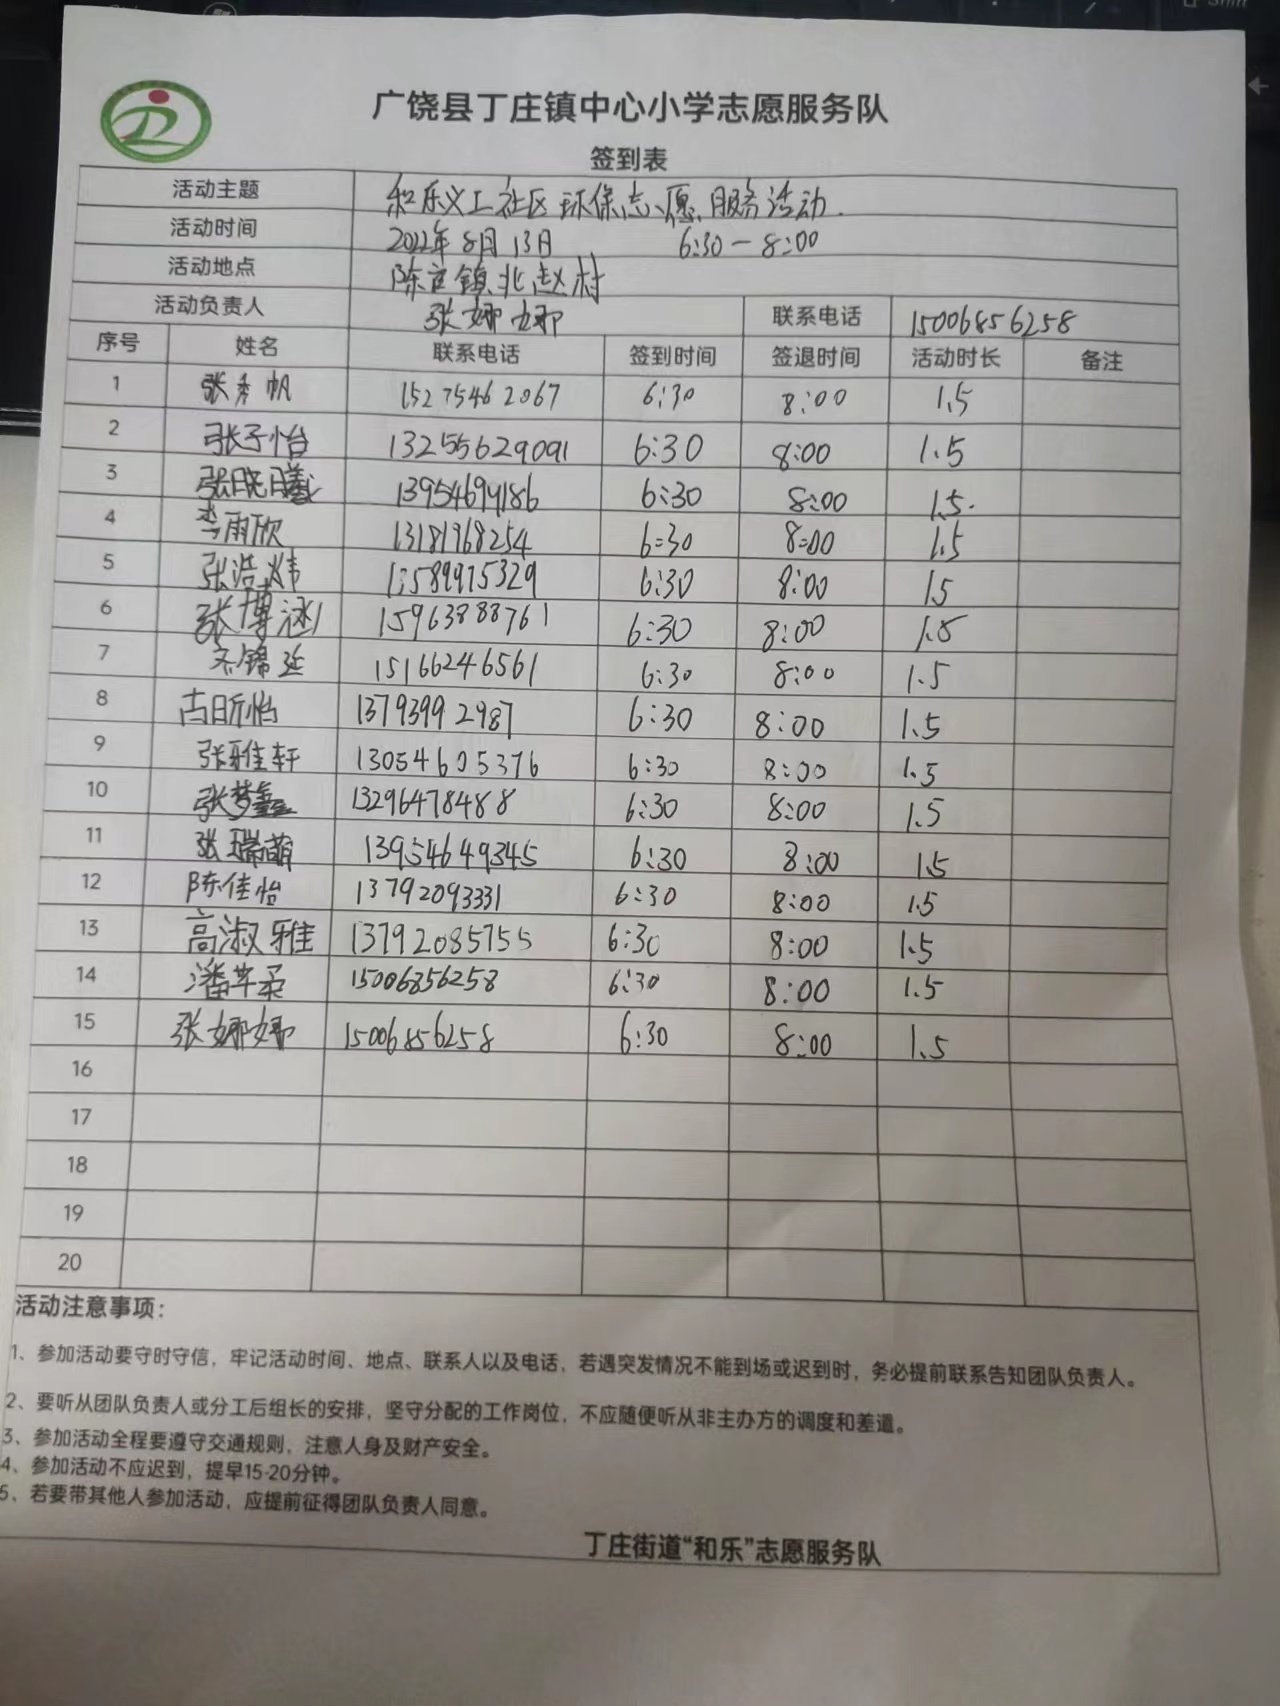 广饶县丁庄镇中心小学志愿服务队
签到表
活动主题 和乐义工社区环保志愿服务活动.
活动时间 2022年8月13日 6:30-8:00
活动地点 陈官镇北赵村
活动负责人 张娜娜 联系电话 15006856258
序号 姓名 联系电话 签到时间 签退时间 活动时长 备注
1 张秀帆 15275462067 6:30 8:00 1.5
2 张子怡 13255629091 6:30 8:00 1.5
3 张晓曦 13954699186 6:30 8:00 1.5.
4 李雨欣 13181968254 6:30 8:00 1.5
5 张浩炜 13589975329 6:30 8:00 1.5
6 张博涵 15963888761 6:30 8:00 1.5
7 齐锦延 15166246561 6:30 8:00 1.5
8 古昕怡 13793992987 6:30 8:00 1.5
9 张雅轩 13054605376 6:30 8:00 1.5
10 张梦鑫 13296478488 6:30 8:00 1.5
11 张瑞萌 13954649345 6:30 8:00 1.5
12 陈佳怡 13792093331 6:30 8:00 1.5
13 高淑雅 13792085755 6:30 8:00 1.5
14 潘芊柔 15006856258 6:30 8:00 1.5
15 张娜娜 15006856258 6:30 8:00 1.5
16
17
18
19
20
活动注意事项：
1、参加活动要守时守信，牢记活动时间、地点、联系人以及电话，若遇突发情况不能到场或迟到时，务必提前联系告知团队负责人。
2、要听从团队负责人或分工后组长的安排，坚守分配的工作岗位，不应随便听从非主办方的调度和差遣。
3、参加活动全程要遵守交通规则，注意人身及财产安全。
4、参加活动不应迟到，提早15-20分钟。
5、若要带其他人参加活动，应提前征得团队负责人同意。
丁庄街道“和乐”志愿服务队